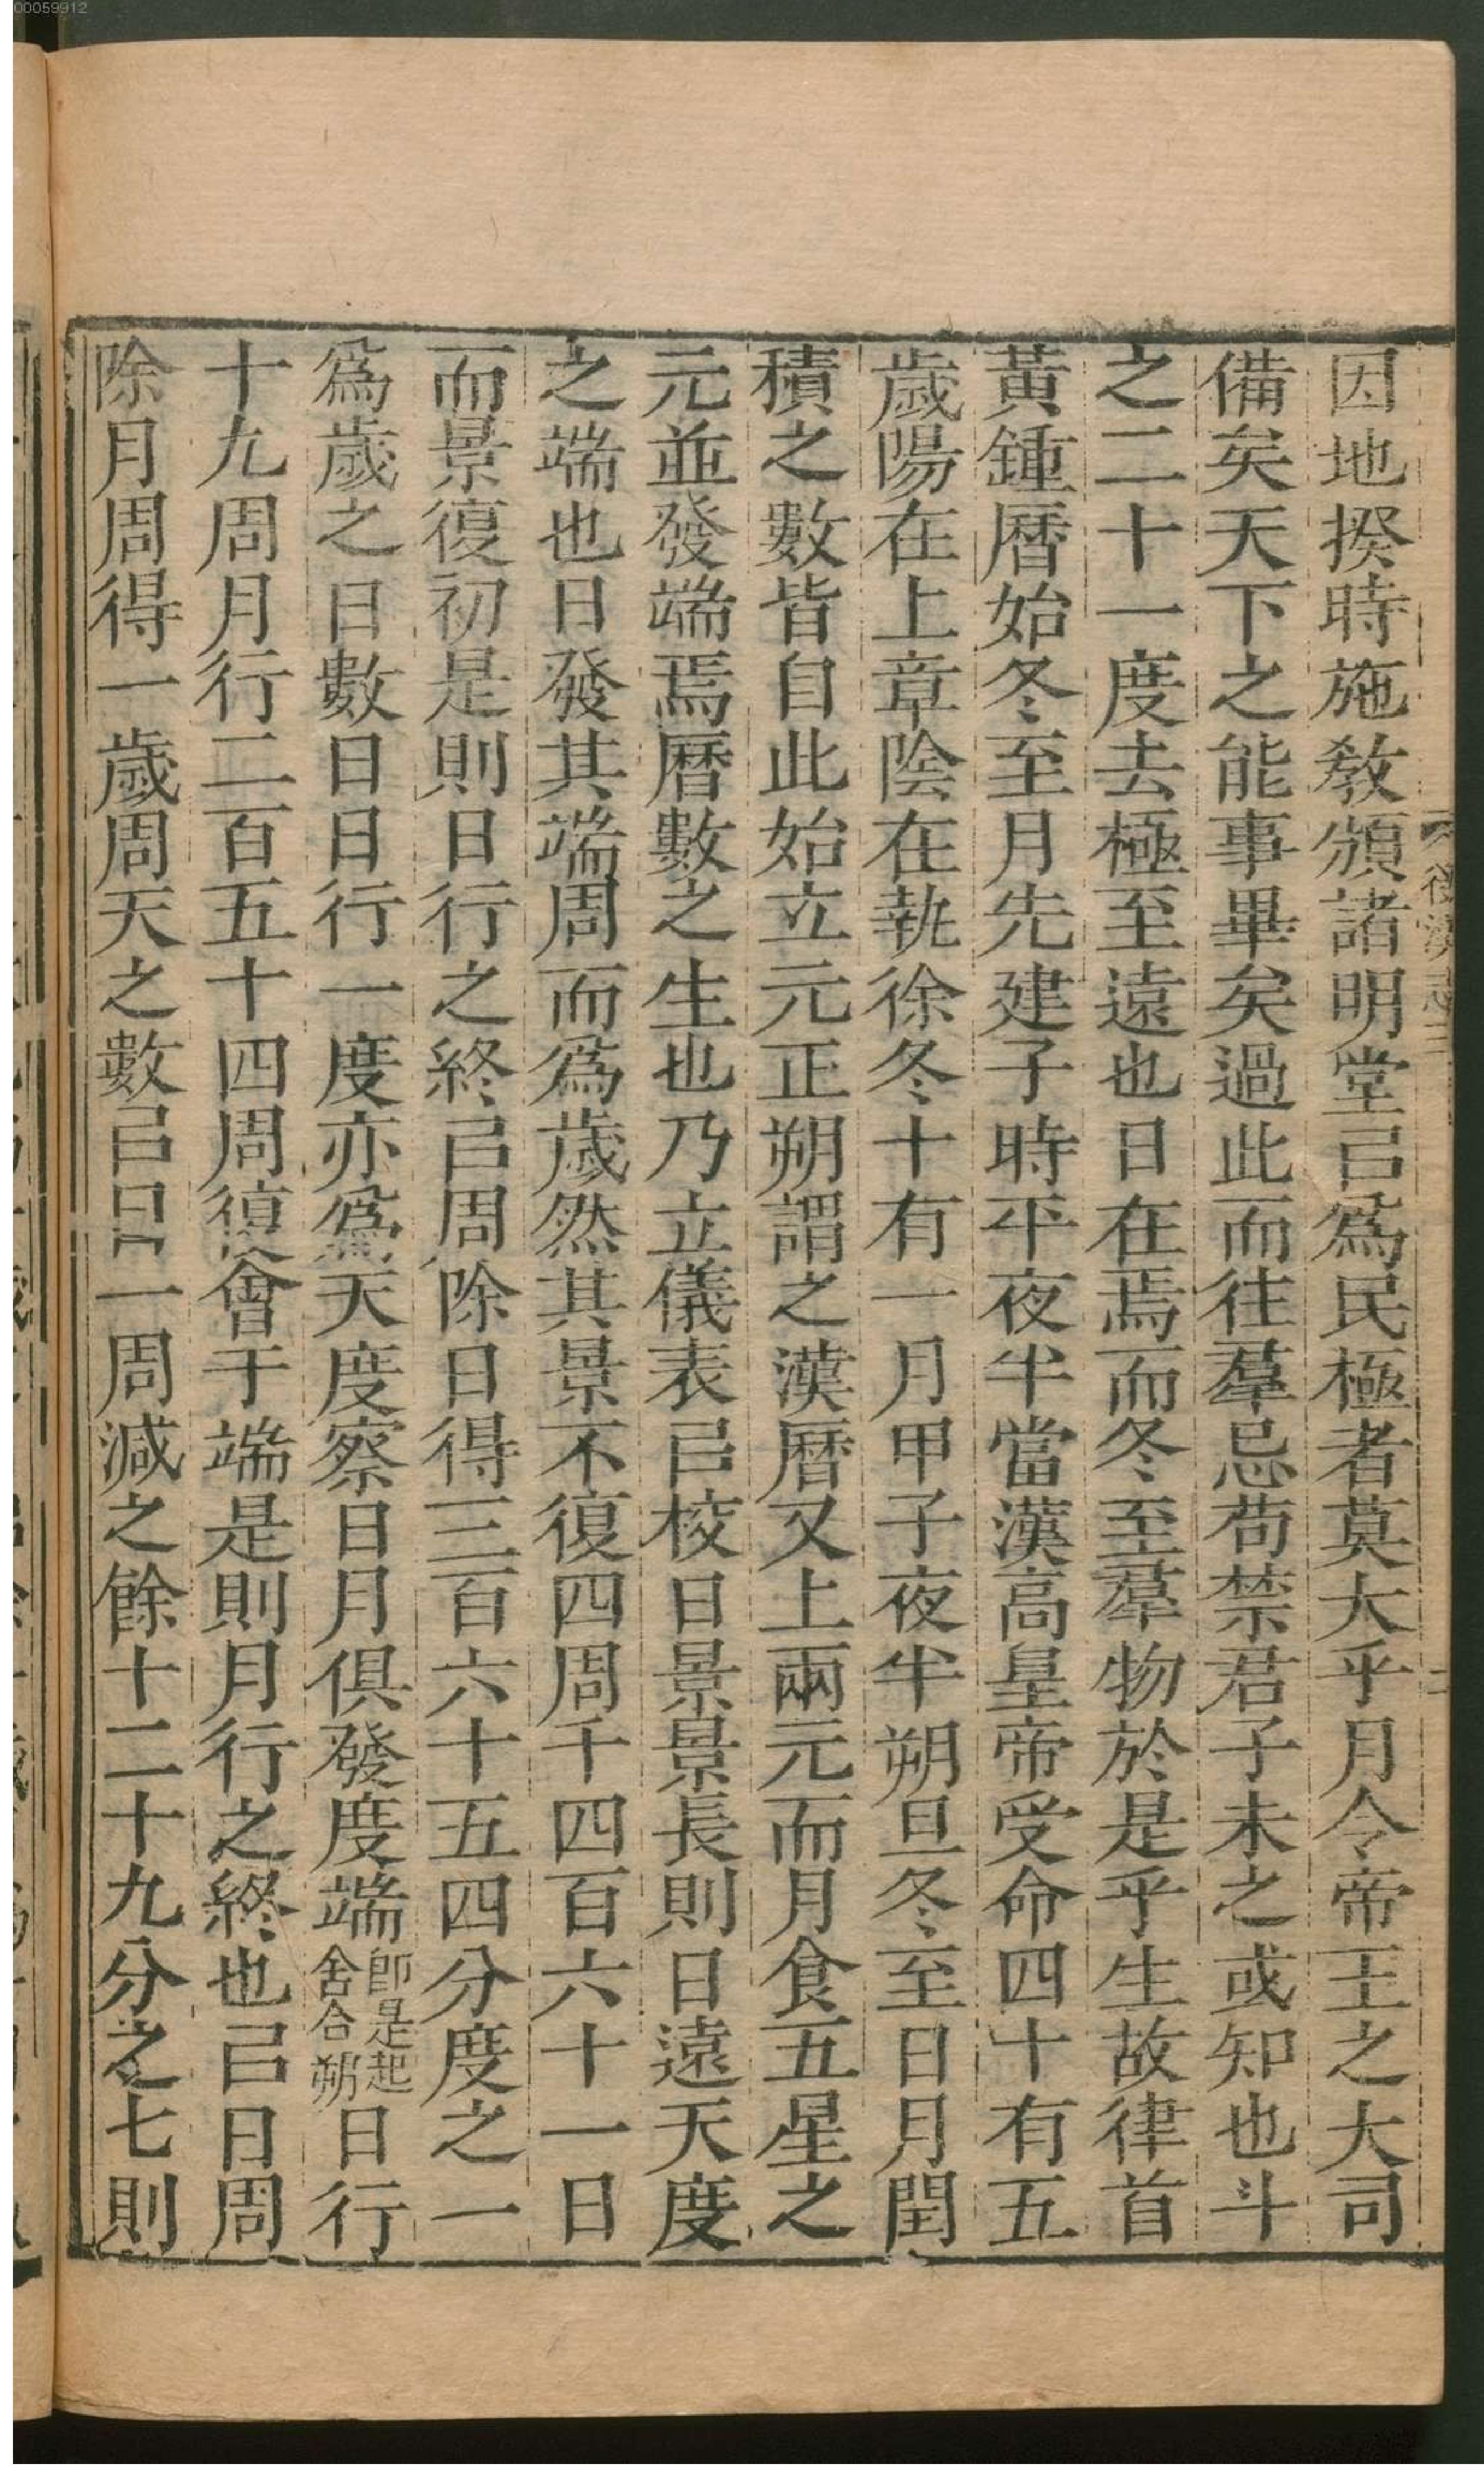 00059912
後漢志三
二
因地揆時施敎頒諸明堂㠯爲民極者莫大乎月令帝王之大司
備矣天下之能事畢矣過此而往羣忌苟禁君子未之或知也斗
之二十一度去極至遠也日在焉而冬至羣物於是乎生故律首
黃鍾曆始冬至月先建子時平夜半當漢高皇帝受命四十有五
歲陽在上章陰在執徐冬十有一月甲子夜半朔旦冬至日月閏
積之數皆自此始立元正朔謂之漢曆又上兩元而月食五星之
元並發端焉曆數之生也乃立儀表㠯校日景景長則日遠天度
之端也日發其端周而爲歲然其景不復四周千四百六十一日
而景復初是則日行之終㠯周除日得三百六十五四分度之一
爲歲之日數日日行一度亦爲天度察日月俱發度端卽是起舍合朔日行
十九周月行二百五十四周復會于端是則月行之終也㠯日周
除月周得一歲周天之數㠯日一周減之餘十二十九分之七則